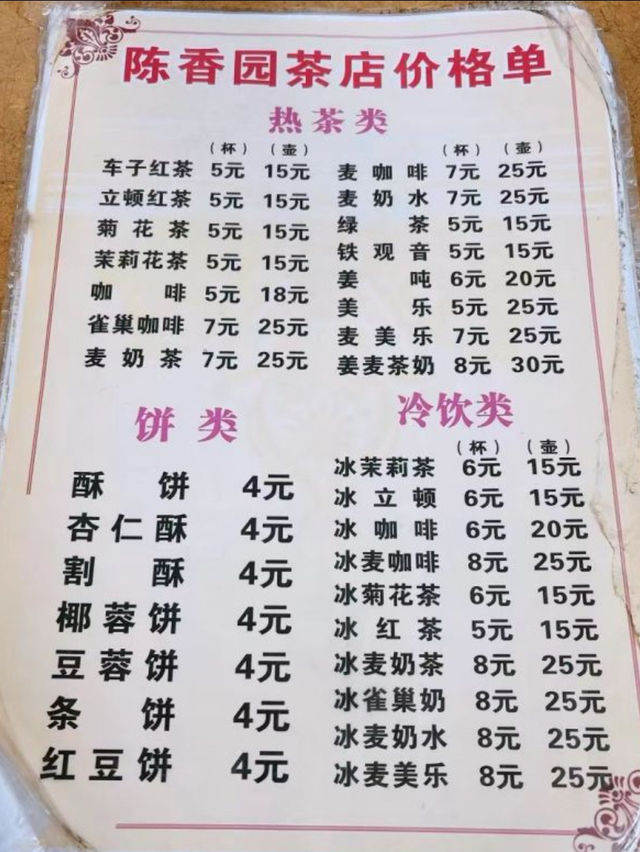 陈香园茶店价格单
热茶类
（杯）（壶）
车子红茶 5元 15元
立顿红茶 5元 15元
菊花茶 5元 15元
茉莉花茶 5元 15元
咖啡 5元 18元
雀巢咖啡 7元 25元
麦奶茶 7元 25元
（杯）（壶）
麦咖啡 7元 25元
麦奶水 7元 25元
绿茶 5元 15元
铁观音 5元 15元
姜吨 6元 20元
美乐 5元 25元
麦美乐 7元 25元
姜麦茶奶 8元 30元
饼类
酥饼 4元
杏仁酥 4元
割酥 4元
椰蓉饼 4元
豆蓉饼 4元
条饼 4元
红豆饼 4元
冷饮类
（杯）（壶）
冰茉莉茶 6元 15元
冰立顿 6元 15元
冰咖啡 6元 20元
冰麦咖啡 8元 25元
冰菊花茶 6元 15元
冰红茶 5元 15元
冰麦奶茶 8元 25元
冰雀巢奶 8元 25元
冰麦奶水 8元 25元
冰麦美乐 8元 25元